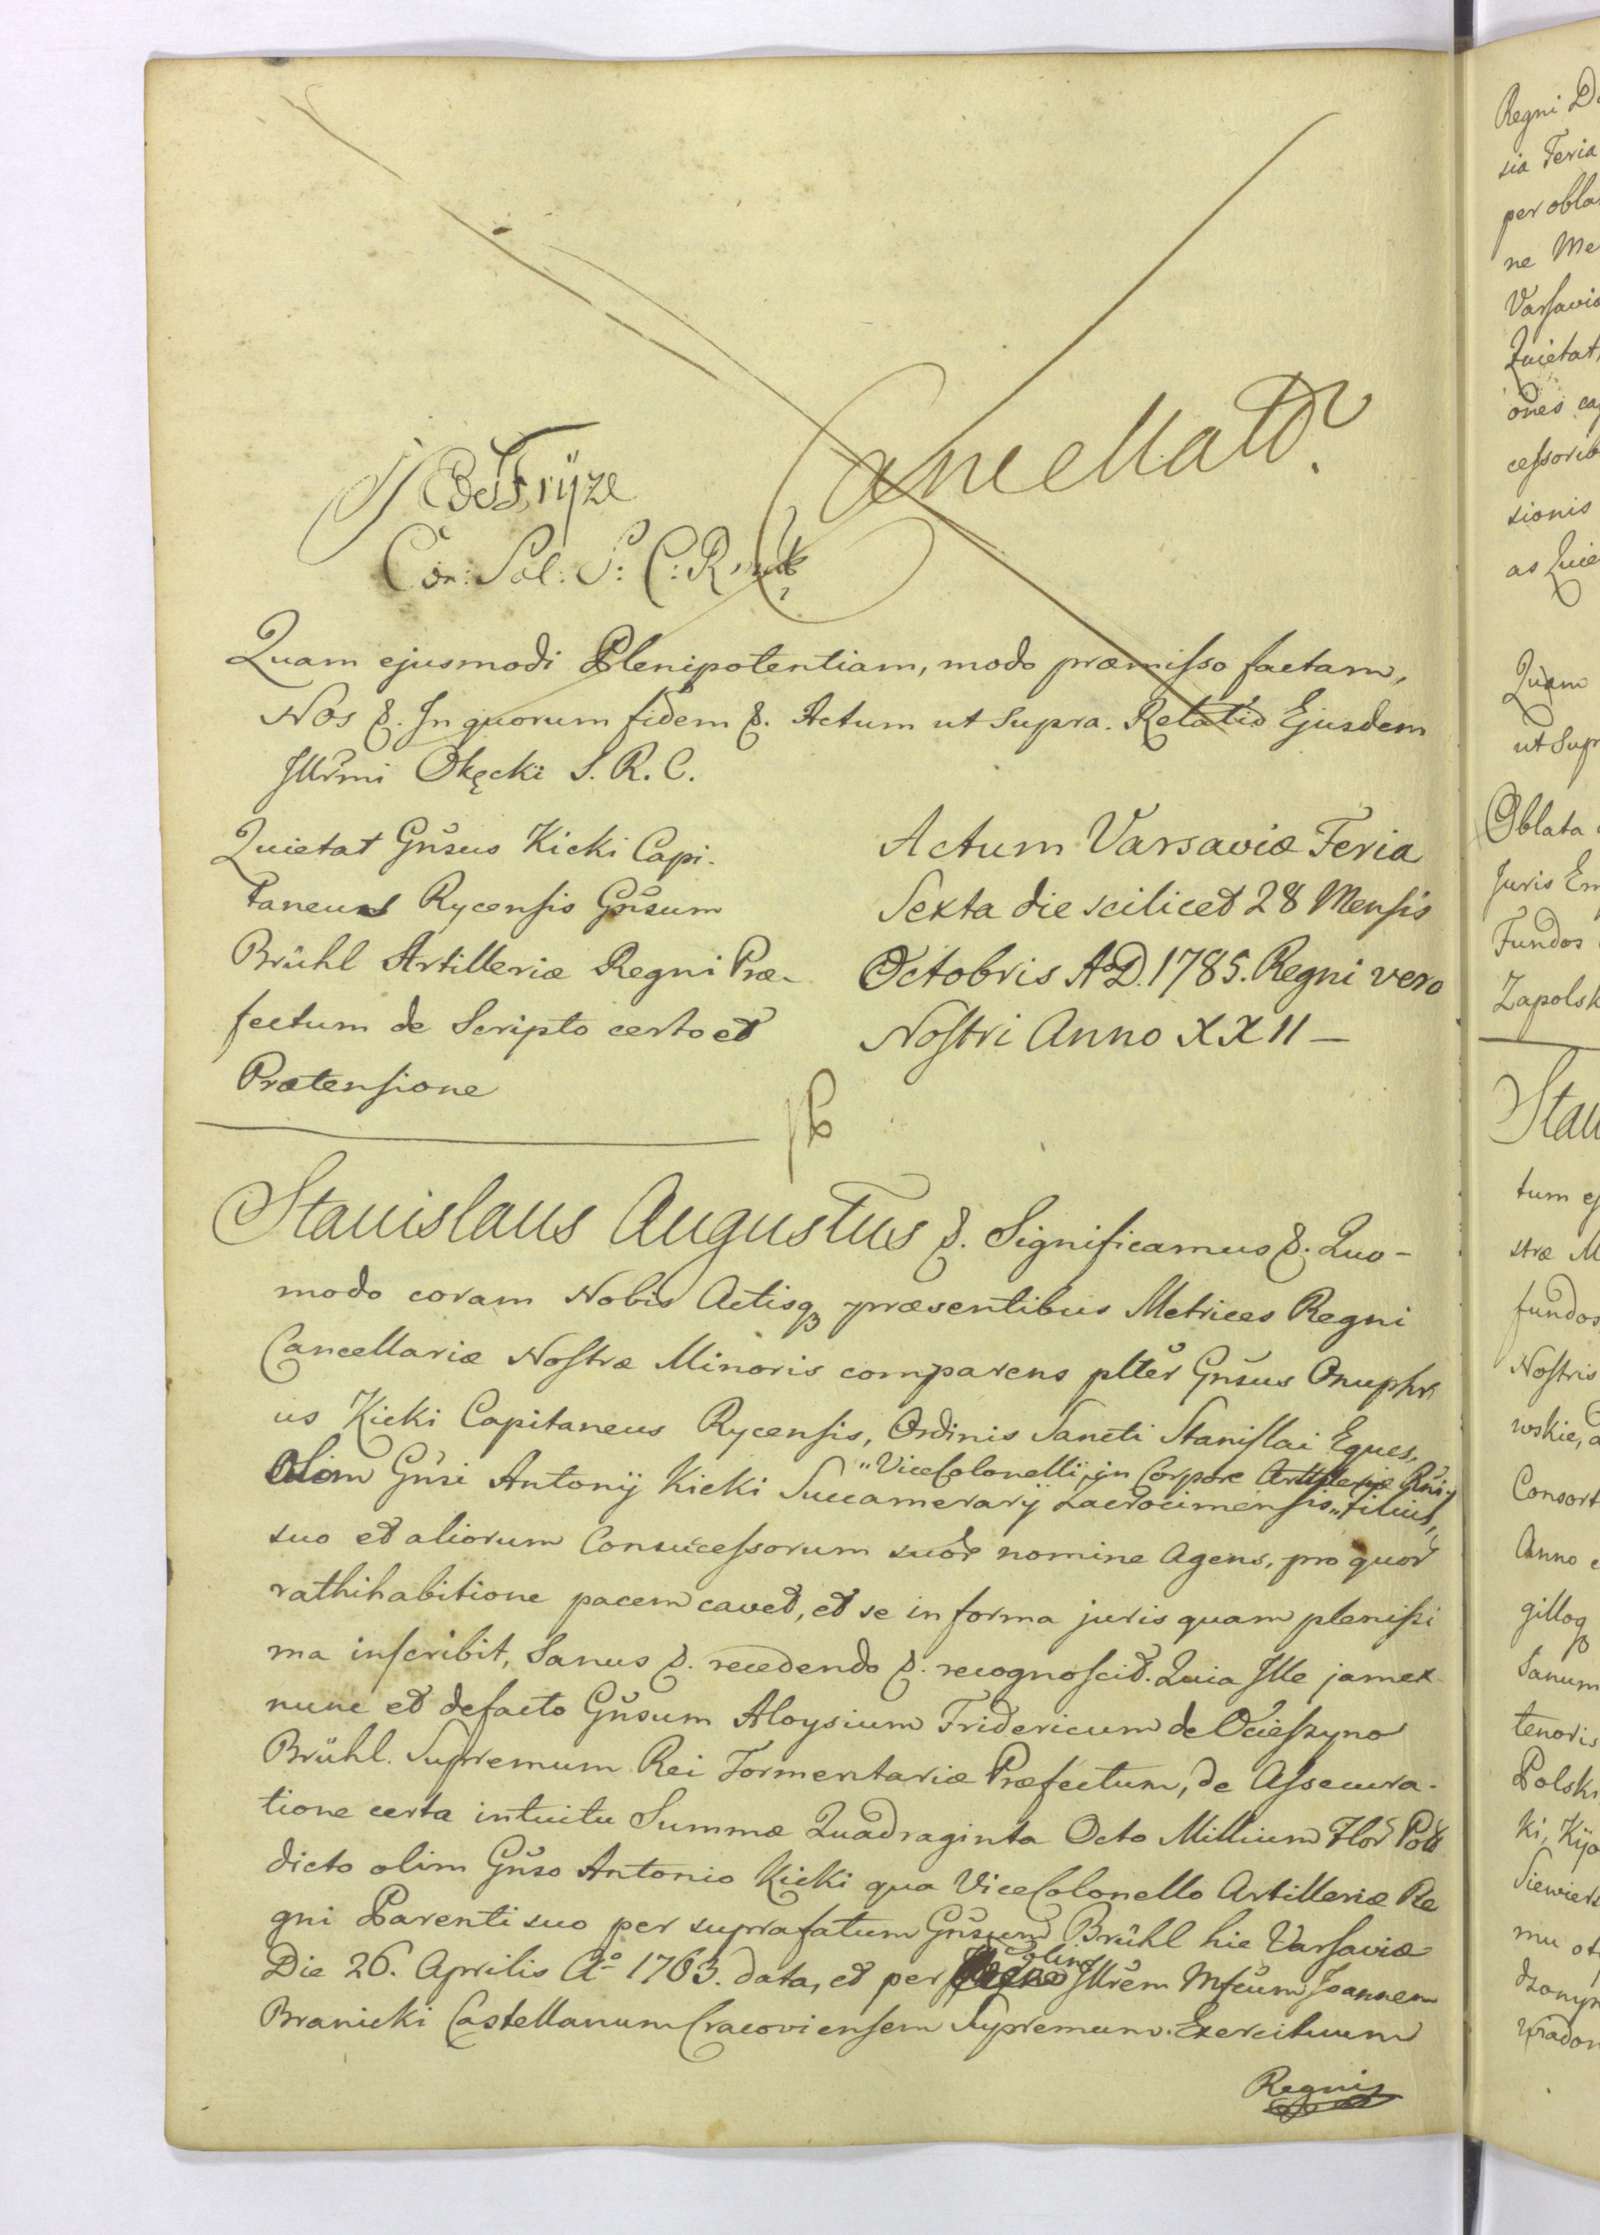 Cancellatr.
J C de Fryze
Con: Pal: S: C: R.
Quam ejusmodi Plenipotentiam, modo præmisso factam,
Nos &. In quorum fidem &. Actum ut supra. Relatio Ejusdem
Illrmi Okęcki S. R. C.
Quietat Gnsus Kicki Capi-
taneus Rycensis Gnsum
Brühl Artilleriæ Regni Præ-
fectum de Scripto certo et
Prætensione
Actum Varsaviæ Feria
Sexta die scilicet 28 Mensis
Octobris A.D. 1785. Regni vero
Nostri Anno XXII —
Stanislaus Augustus &. Significamus &. Quo-
modo coram Nobis Actisq præsentibus Metrices Regni
Cancellariæ Nostræ Minoris comparens plter Gnsus Onuphri
us Kicki Capitaneus Rycensis, Ordinis Sancti Stanislai Eques,
"ViceColonelli, in Corpore Artilleriæ Rni,
Olim Gnsi Antonij Kicki Succamerarij Zacrocimensis" Filius,
suo et aliorum Consuccessorum suor nomine Agens, pro quor
rathihabitione pacem cavet, et se in forma juris quam plenissi
ma inscribit, Sanus &. recedendo &. recognoscit. Quia Ille jam ex
nunc et defacto Gnsum Aloysium Fridericum de Ocieszyno
Brühl. Supremum Rei Tormentariæ Præfectum, de Assecura-
tione certa intuitu Summæ Quadraginta Octo Millium Flor Poll
dicto olim Gnso Antonio Kicki qua ViceColonello Artilleriæ Re
gni Parenti suo per suprafatum Gnsum Brühl hic Varsaviæ
Die 26. Aprilis Aº 1763. data, et per olim Illrem Mfcum Joannem
Branicki Castellanum Cracoviensem Supremum Exercituum
Regni
Regni
sia Feria
per obla
ne Me
Varsavia
Quietat
ones
cessorib
sionis
as
Quam
ut Supr
Oblata
Juris
Fundos
Zapolsk
Stan
tum
stræ M
fundos
Nostris
wskie,
Consort
Anno
gilloq
Sanum
tenoris
Polski
ki, Kijo
Siewiers
mu